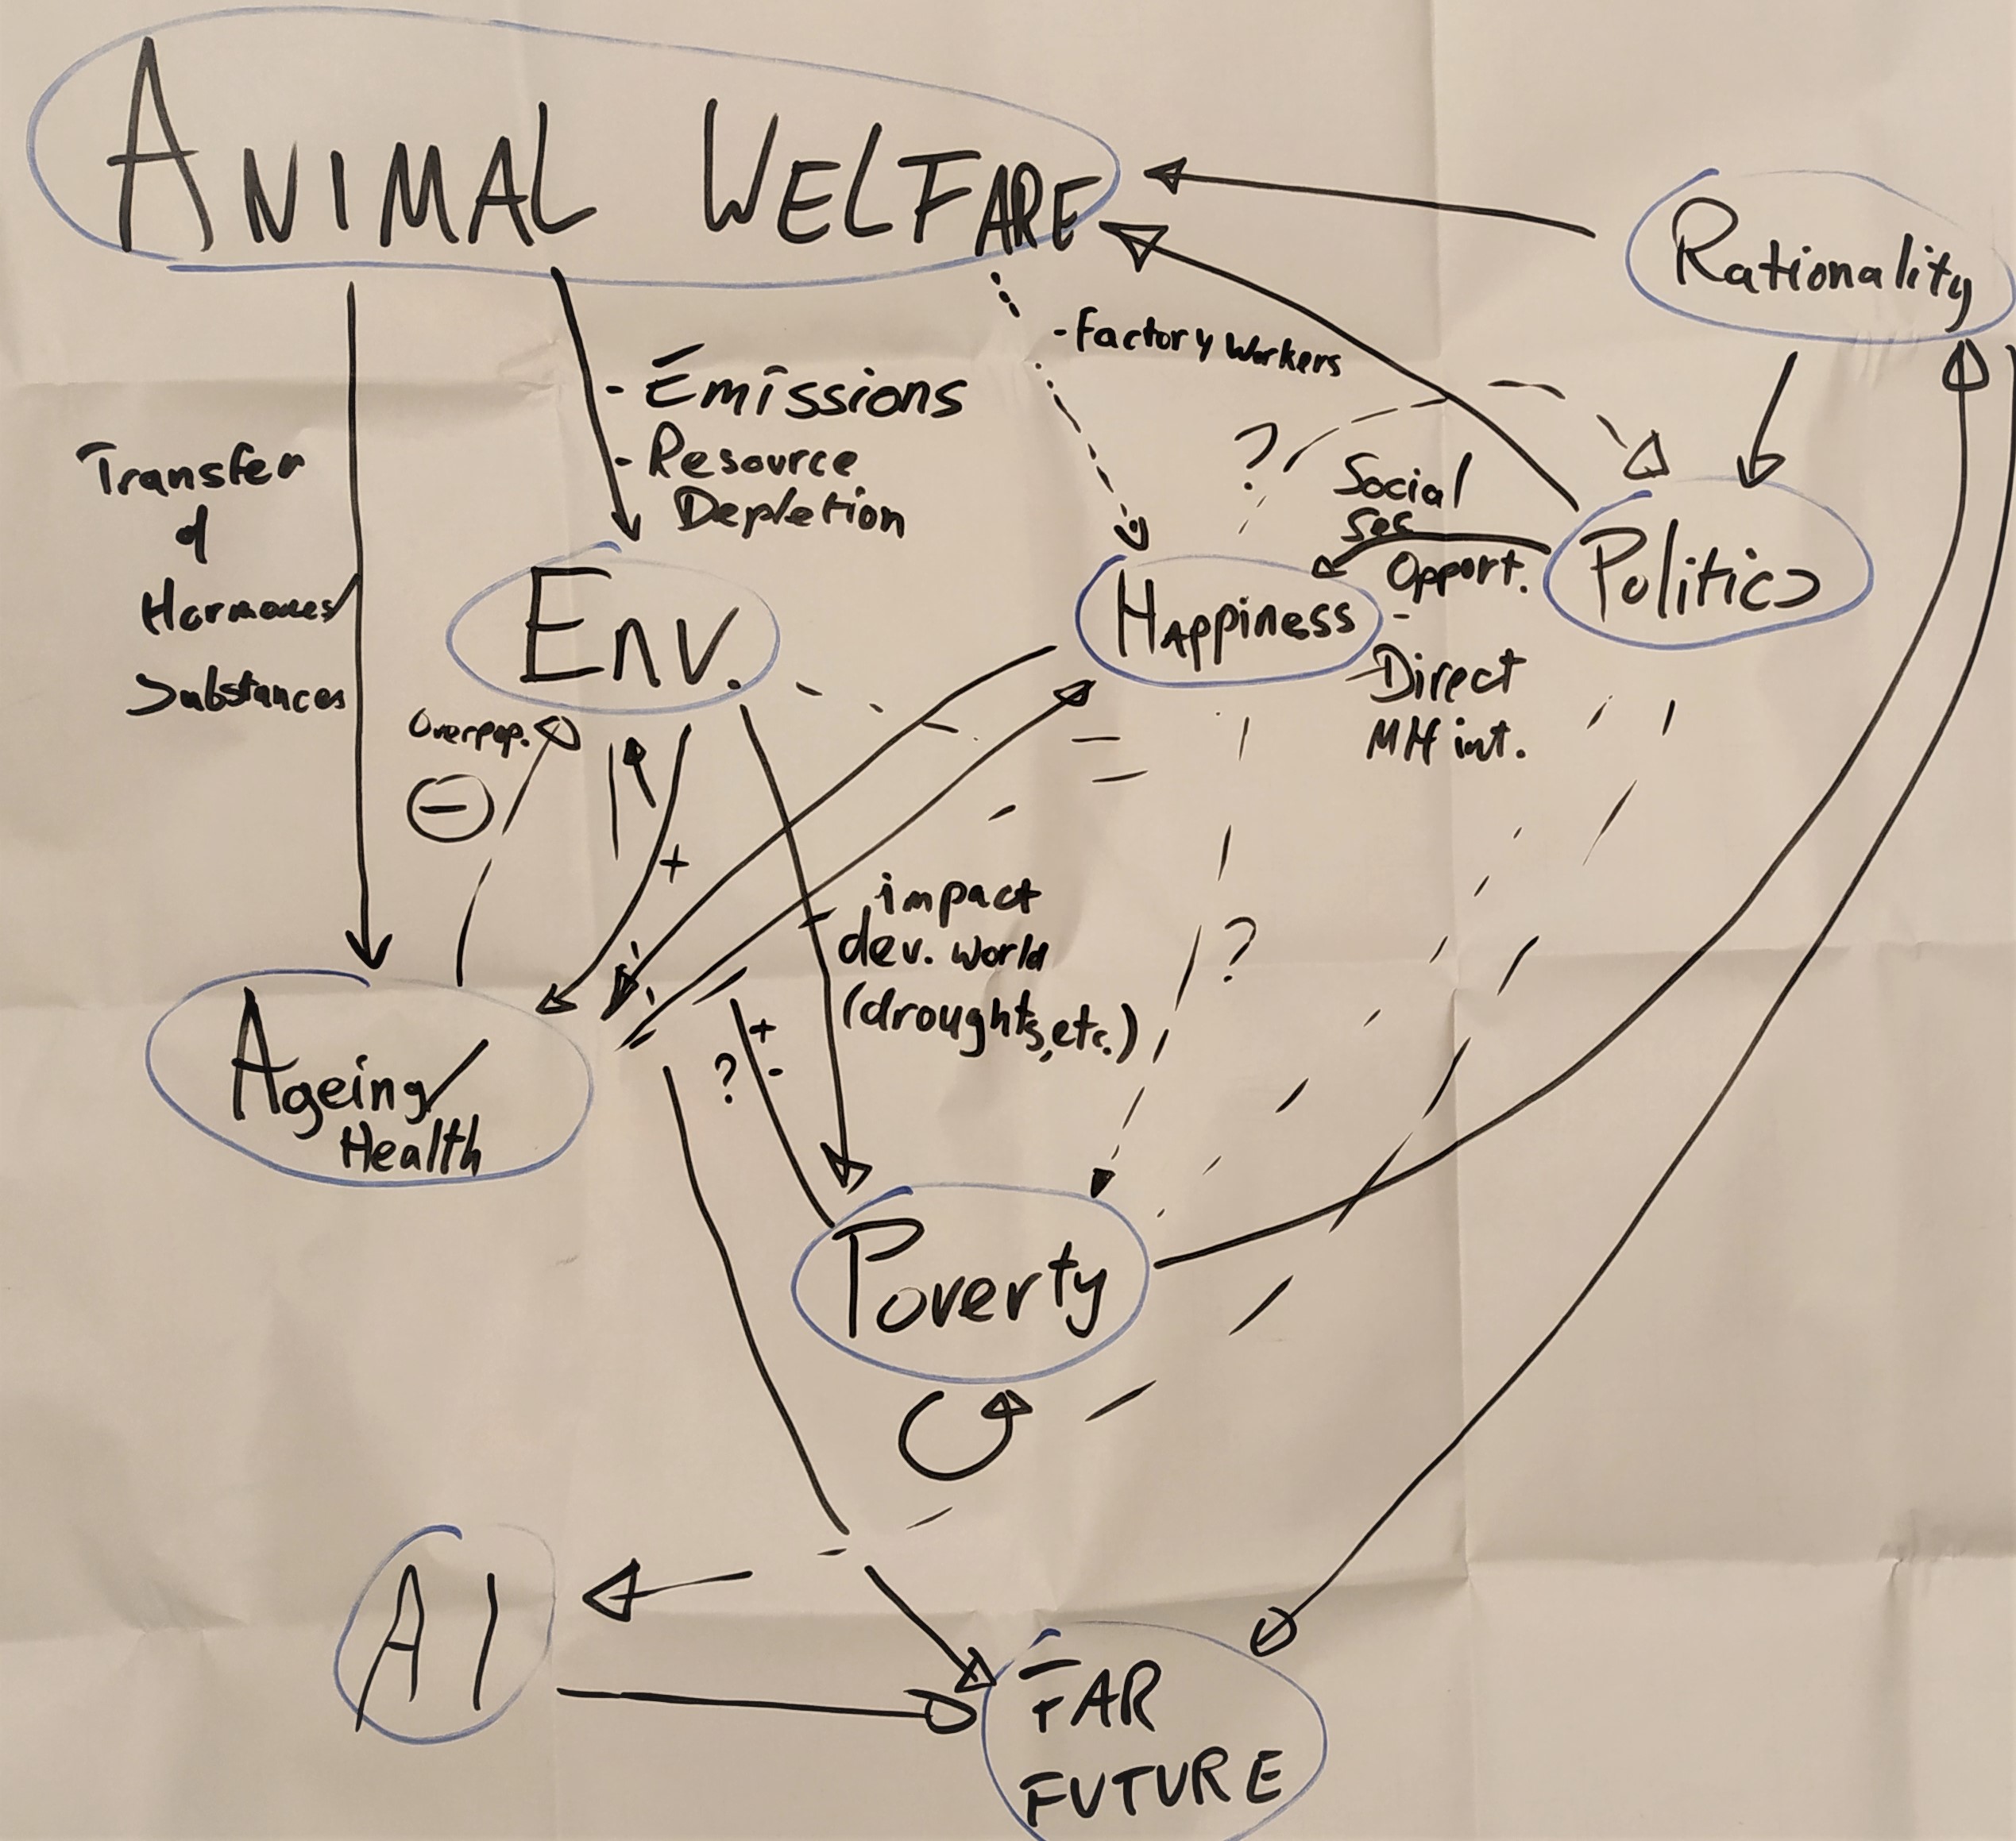 ANIMAL WELFARE
Rationality
- Factory Workers
- Emissions
- Resource
Depletion
Transfer
of
Hormones/
Substances
?
Social
Sec
Opport.
Politics
Env.
Happiness
-
Direct
MH int.
Overpop.
-
+
impact
dev. world
(droughts, etc.)
?
+
-
?
Ageing/
Health
Poverty
AI
FAR
FUTURE